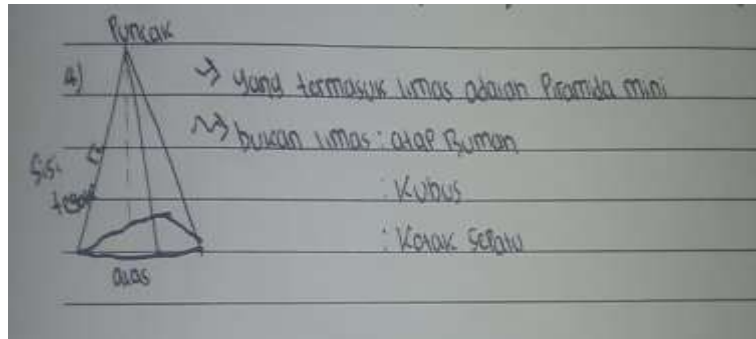 Puncak
4) → yang termasuk limas adalah Piramida mini
→ bukan limas : atap Rumah
Sisi
tegak
: Kubus
: Kotak Sepatu
alas